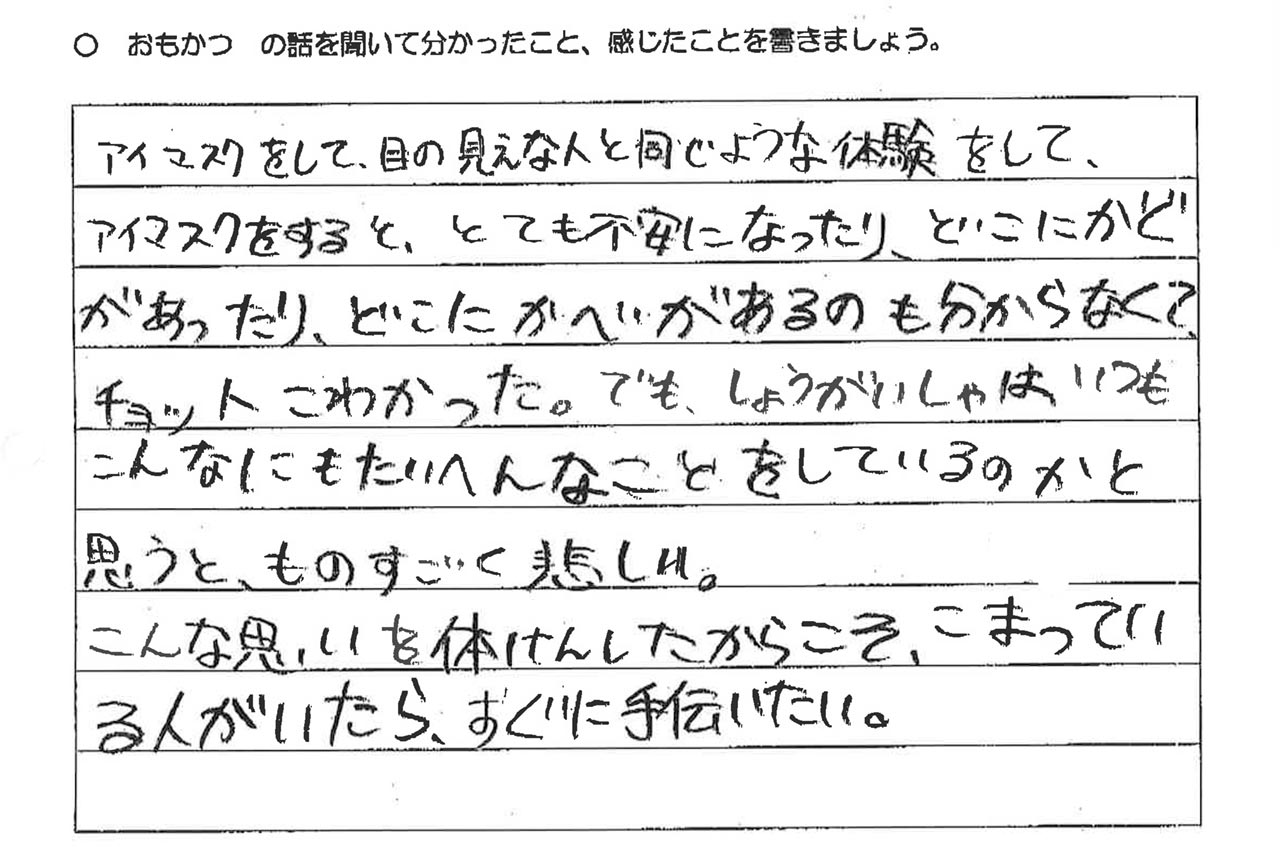 ○ おもかつ の話を聞いて分かったこと、感じたことを書きましょう。
アイマスクをして、目の見えな人と同じような体験をして、
アイマスクをすると、とても不安になったり、どこにかど
があったり、どこにかべがあるのも分からなくて、
チョットこわかった。でも、しょうがいしゃは、いつも
こんなにもたいへんなことをしているのかと
思うと、ものすごく悲しい。
こんな思いを体けんしたからこそ、こまってい
る人がいたら、すぐに手伝いたい。